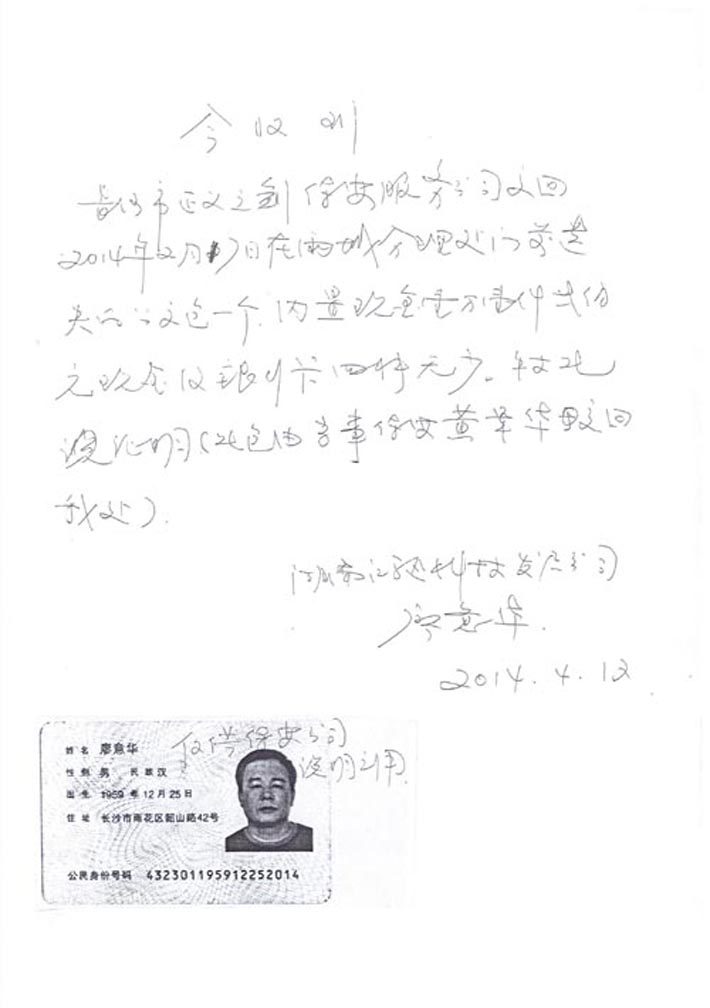 今收到
益阳市正义之剑保安服务公司交回
2014年2月17日在 分理处门前遗
失的公文包一个.内置现金壹万 仟弍佰
元现金及银行卡四件无少。特此
说明(此包由当事保安黄 华 交回
我处).
湖南 科技发展公司
廖意华.
2014.4.12
姓名 廖意华
仅供保安公司
说明引用
性别 男 民族 汉
出生 1959年12月25日
住址 长沙市雨花区韶山路42号
公民身份号码 432301195912252014